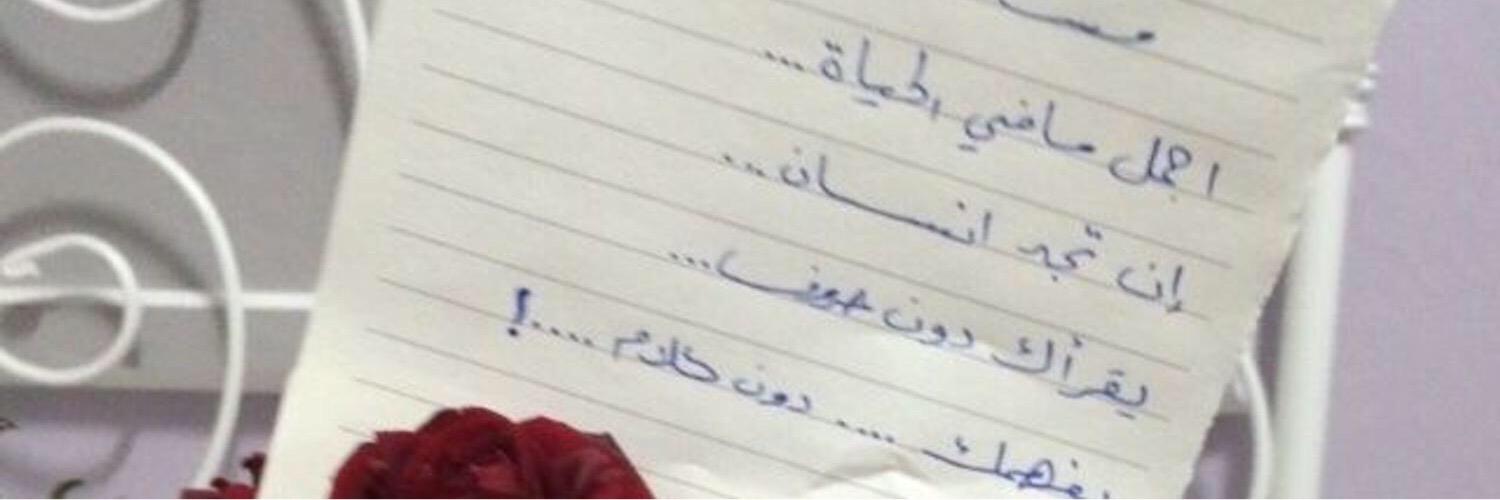 اجمل مافي الحياة ...
إن تجد انسان ...
يقرأك دون حروف ...
يفهمك .... دون كلام ....!